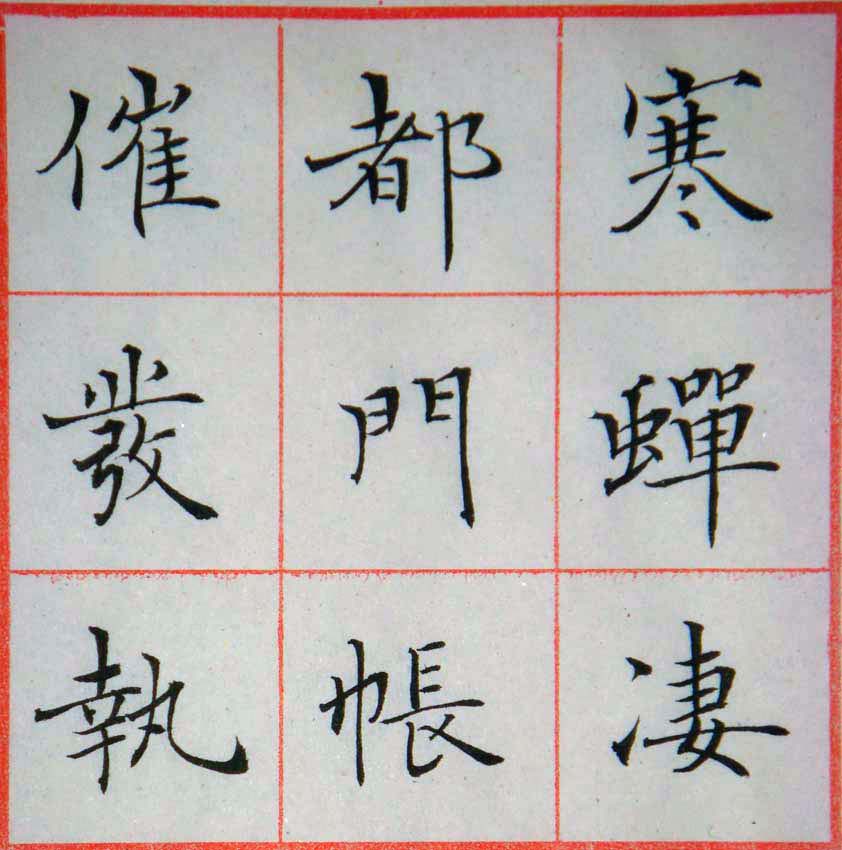 寒蟬凄
都門帳
催發執